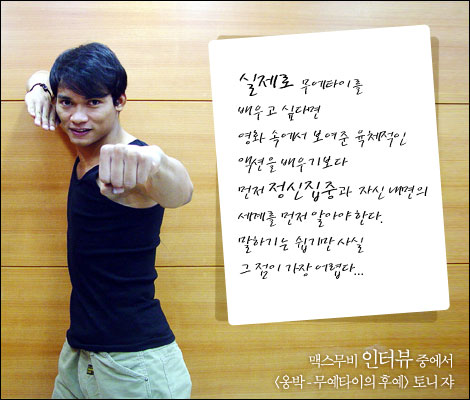 실제로 무에타이를
배우고 싶다면
영화 속에서 보여준 육체적인
액션을 배우기보다
먼저 정신집중과 자신 내면의
세계를 먼저 알아야 한다.
말하기는 쉽기만 사실
그 점이 가장 어렵다...
맥스무비 인터뷰 중에서
<옹박 - 무에타이의 후예> 토니 쟈